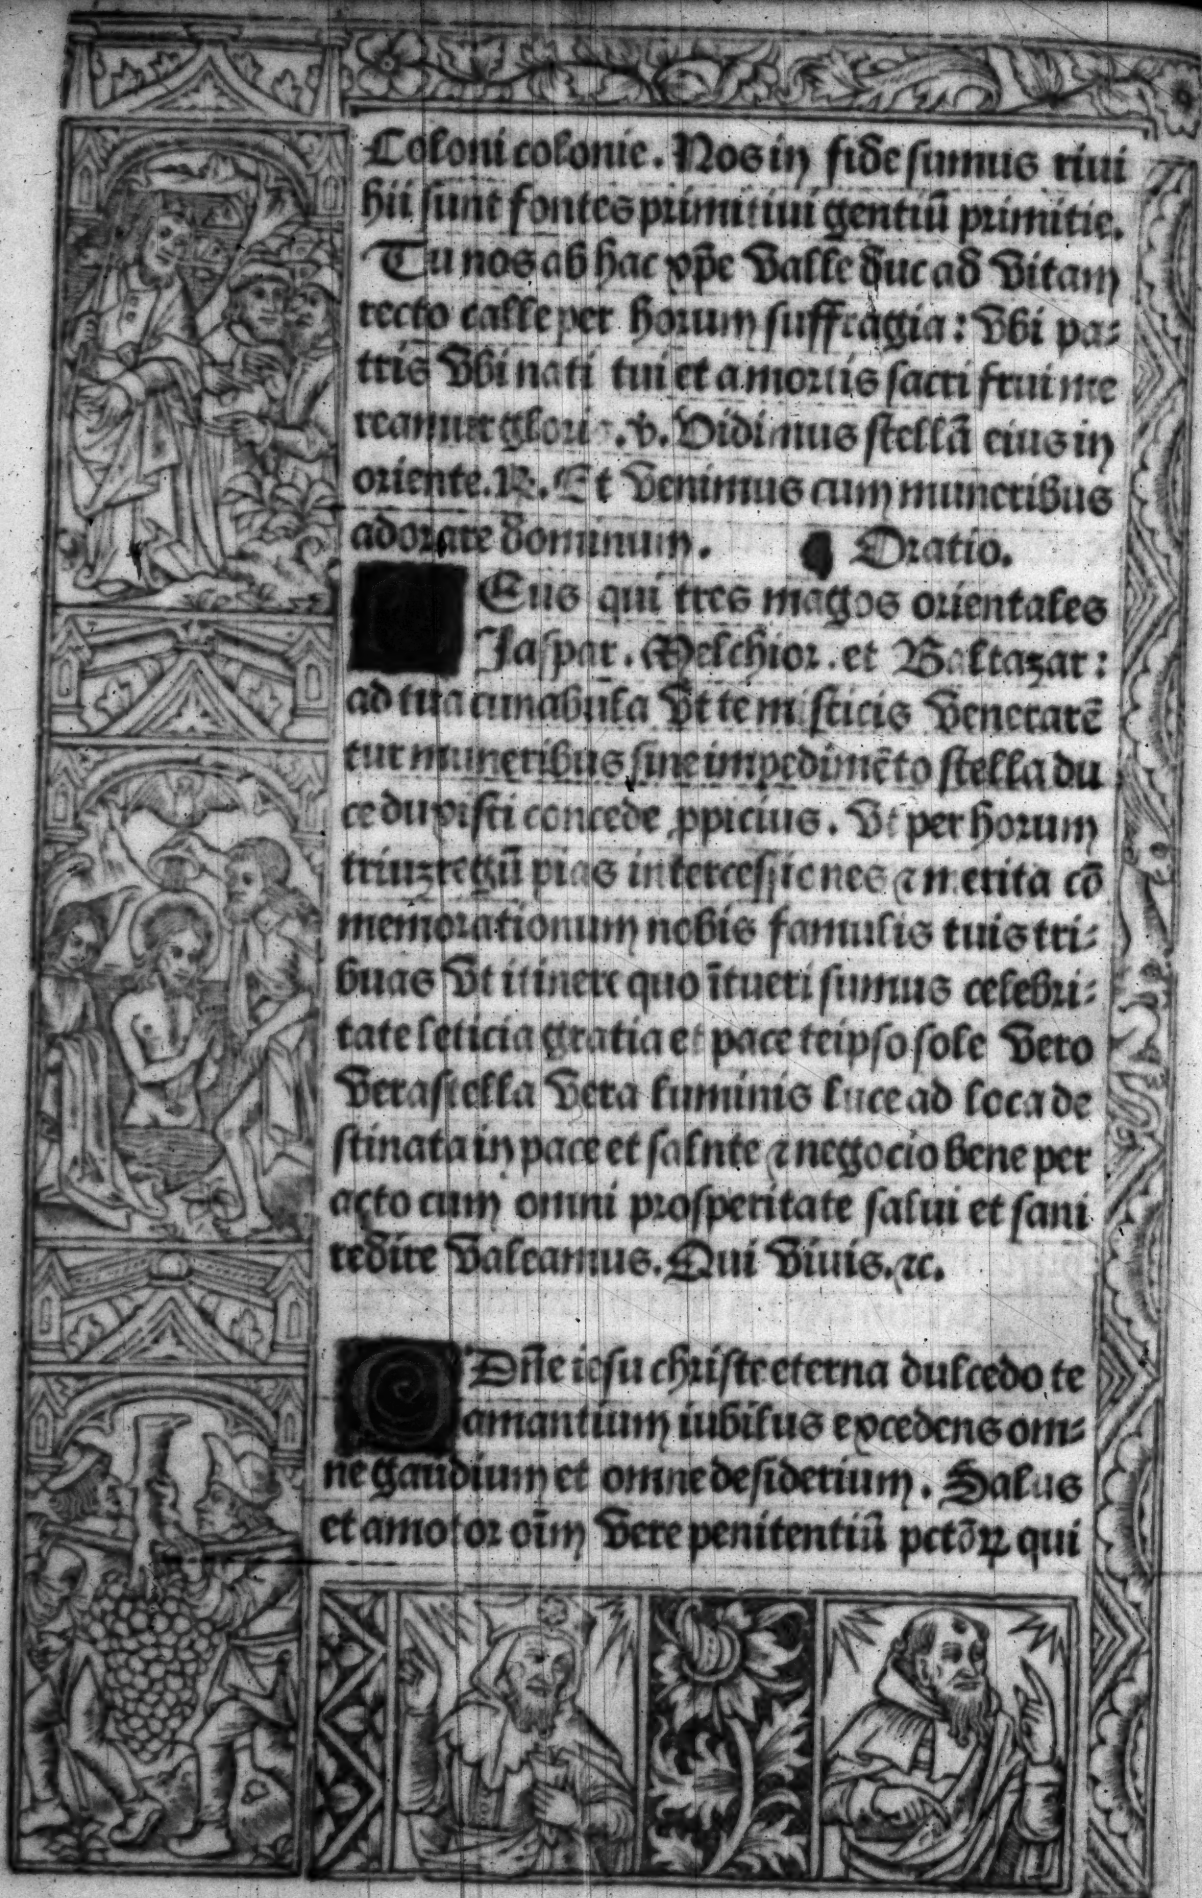 Coloni colonie. Nos in fide sumus riui
hii sunt fontes primitiui gentiū primitie.
Tu nos ab hac xp̄e valle duc ad vitam
recto calle per horum suffragia: vbi pa-
tris vbi nati tui et amortis sacri frui me
reamur gloria. v. Vidimus stellā eius in
oriente. R. Et venimus cum muneribus
adorare dominum. Oratio.
Eus qui tres magos orientales
Jaspar. Melchior. et Baltazar:
ad tua cunabula vt te misticis venerarē
tur muneribus sine impedimēto stella du
ce duxisti concede ꝓpicius. Vt per horum
triuꝫ regū pias intercessiones ⁊ merita cō
memorationum nobis famulis tuis tri-
buas vt itinere quo ītueri sumus celebri-
tate leticia gratia et pace teipso sole vero
vera stella vera luminis luce ad loca de
stinata in pace et salnte ⁊ negocio bene per
acto cum omni prosperitate salui et sani
redire valeamus. Qui viuis. ⁊c.
O Dn̄e iesu christe eterna dulcedo te
amantium iubilus excedens om-
ne gaudium et omne desiderium. Salus
et amator oīm vere penitentiū pctōꝝ qui